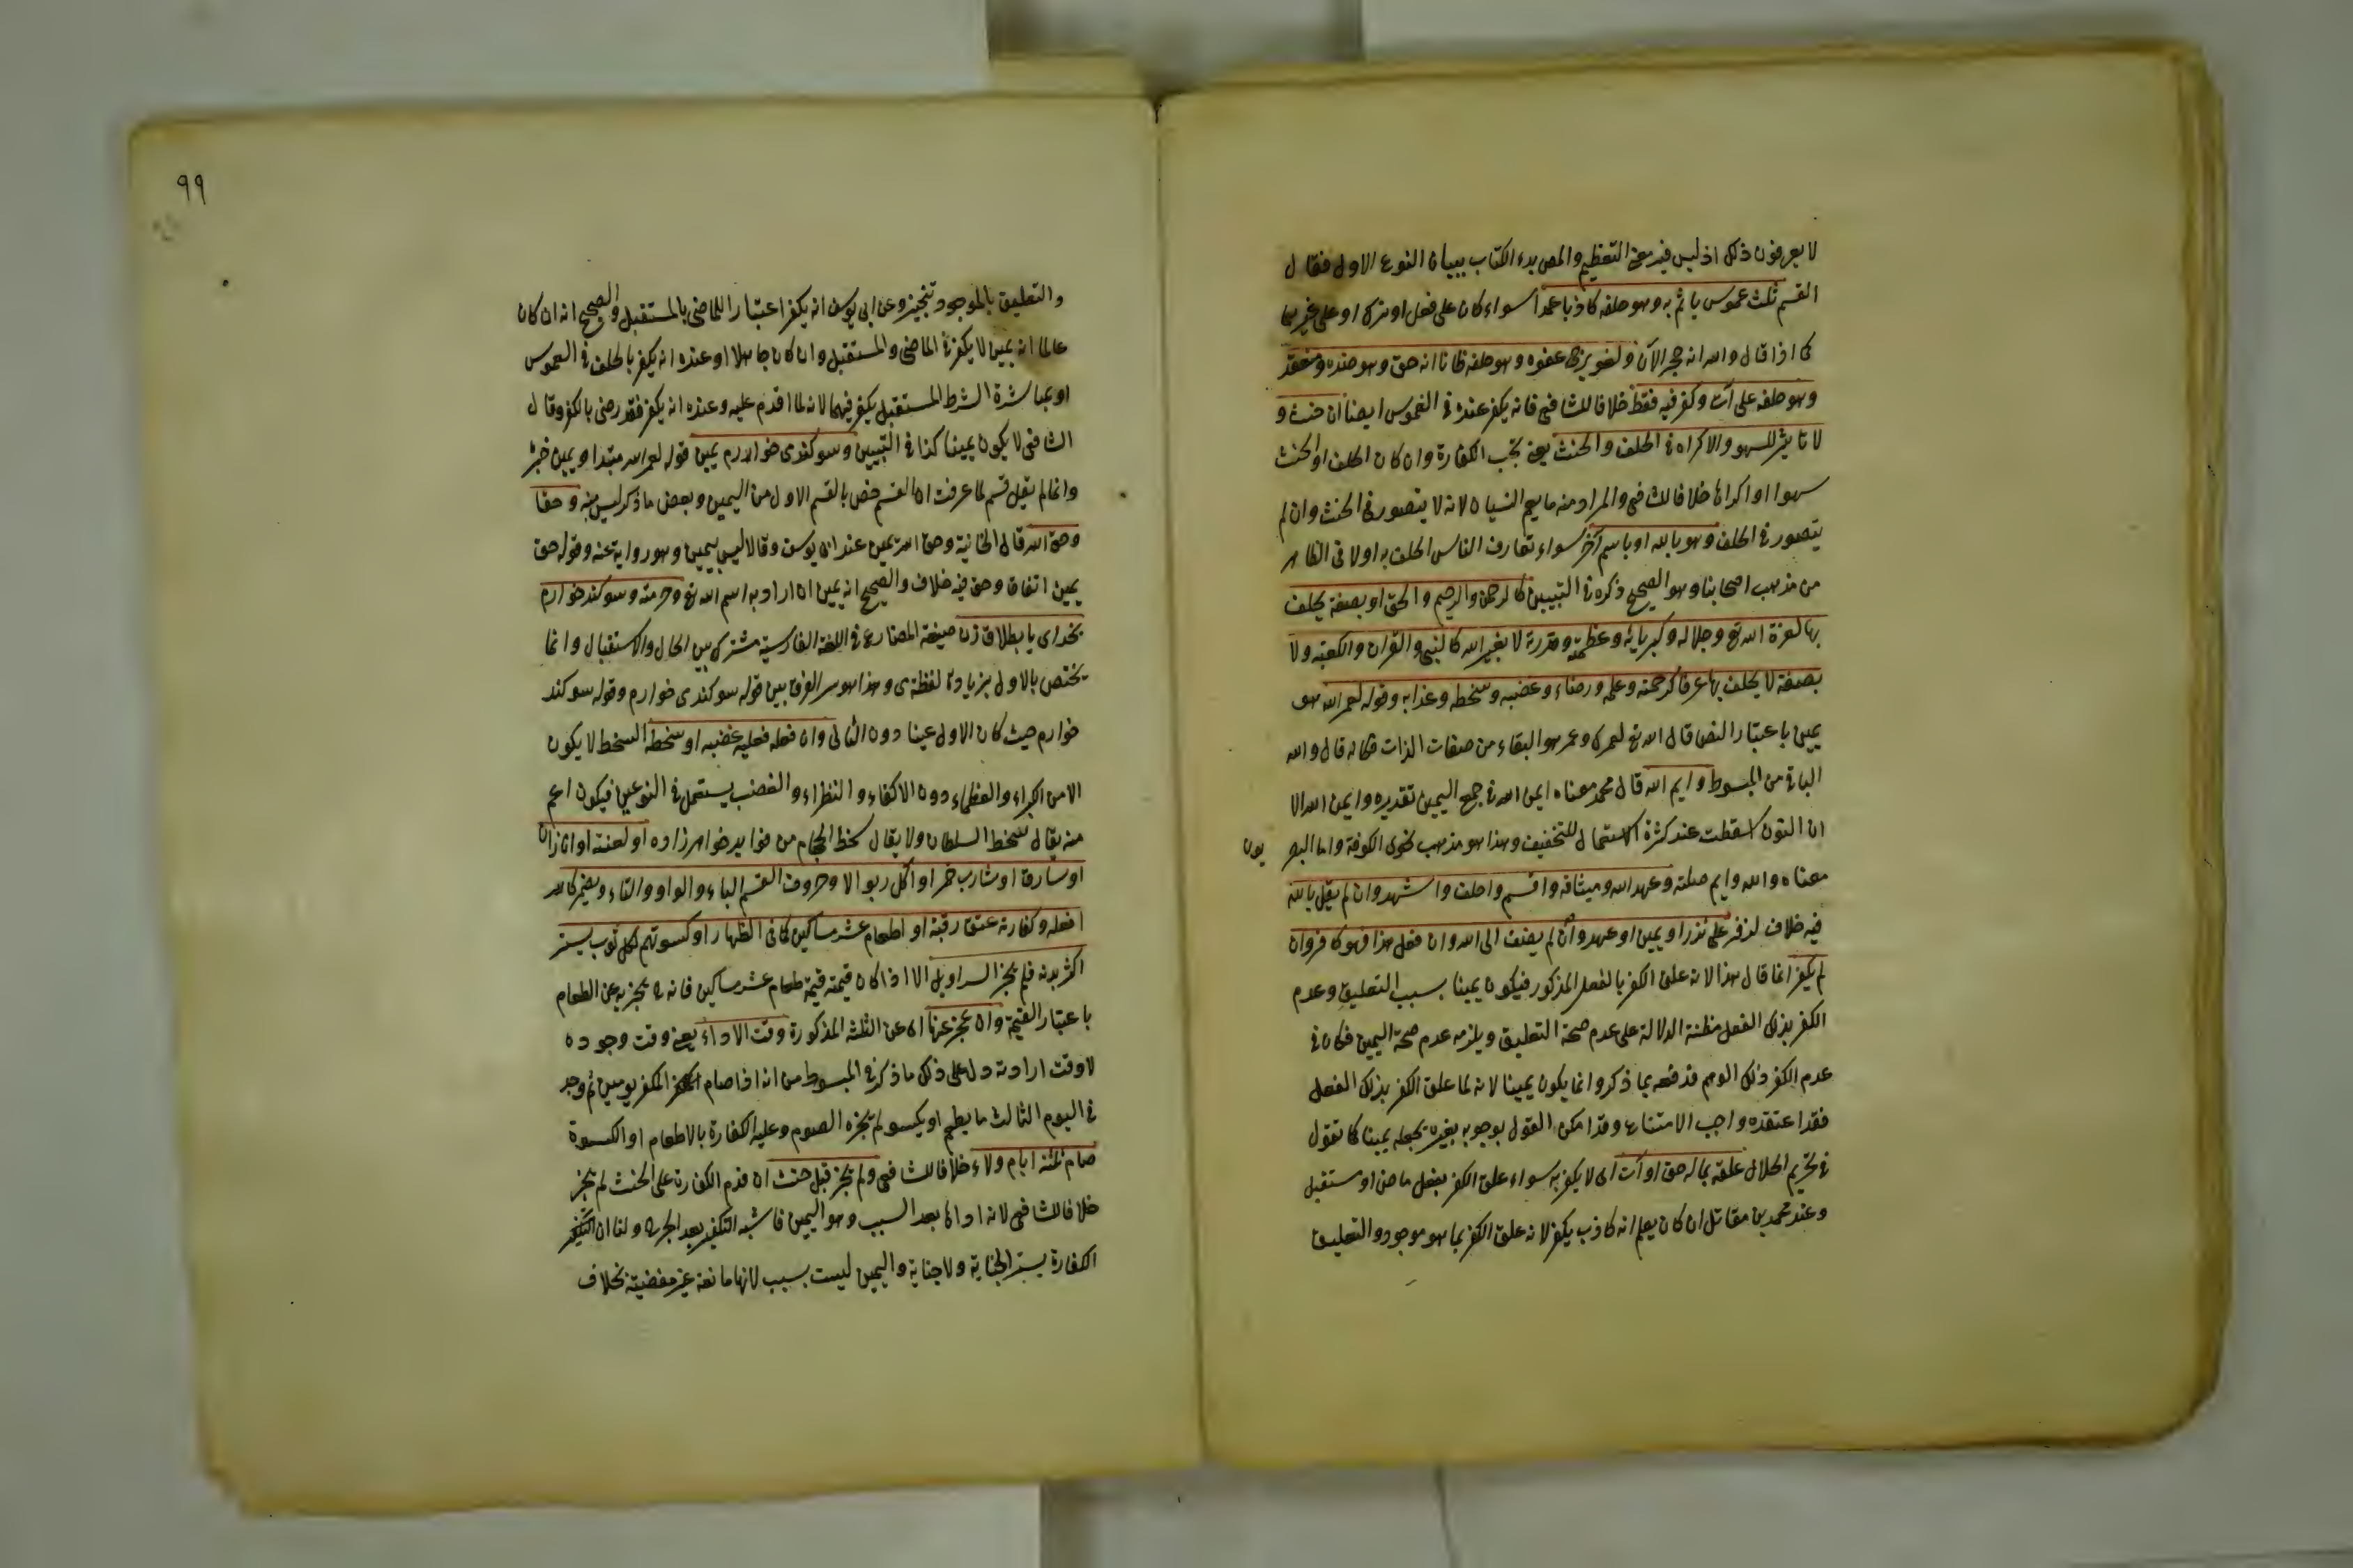 لا يعرفون ذلك اذ ليس فيه معنى التعظيم والمص بدء الكتاب ببيان النوع الاول فقال
القسم ثلث غموس يأثم به وهو حلفه كاذبا عمدا سواء كان على فعل او ترك او على غيرهما
كما اذا قال والله انه حجر الآن ولغو يرجى عفوه وهو حلفه ظانا انه حق وهو ضده ومنعقد
وهو حلفه على آت وكفر فيه فقط خلافا للشافعى فانه يكفر عنده فى الغموس ايضا ان حنث و
لا تأثير للسهو والاكراه فى الحلف والحنث يعنى تجب الكفارة وان كان الحلف او الحنث
سهوا او اكراها خلافا للشافعى والمراد منه ما يعم النسيان لانه لا يتصور فى الحنث وان لم
يتصور فى الحلف وهو بالله او باسم آخر سواء تعارف الناس الحلف به اولا فى الظاهر
من مذهب اصحابنا وهو الصحيح ذكره فى التبيين كالرحمن والرحيم والحق او بصفة يحلف
بها كعزة الله تع وجلاله وكبريائه وعظمته وقدرته لا بغير الله كالنبى والقرآن والكعبة ولا
بصفة لا يحلف بها عرفا كرحمته وعلمه ورضاءه وغضبه وسخطه وعذابه وقوله لعمر الله هو
يمين باعتبار النص قال الله تع لعمرك وعمر هو البقاء من صفات الذات فكانه قال والله
الباقى من المبسوط وايم الله قال محمد معناه ايمن الله فى جمع اليمين تقديره وايمن الله الا
ان النون اسقطت عند كثرة الاستعمال للتخفيف وهذا هو مذهب نحوى الكوفة واما البصر يون
معناه والله وايم صلته وعهد الله وميثاقه واقسم واحلف واشهد وان لم يقل بالله
فيه خلاف لزفر على نذر او يمين او عهد وان لم يضف الى الله وان فعل هذا فهو كافر وان
لم يكفر انما قال هذا لانه علق الكفر بالفعل المذكور فيكون يمينا بسبب التعليق وعدم
الكفر بذلك الفعل مظنة الدلالة على عدم صحة التعليق ويلزمه عدم صحة اليمين فكان فى
عدم الكفر ذلك الوهم فدفعه بما ذكر وانما يكون يمينا لانه لما علق الكفر بذلك الفعل
فقد اعتقده واجب الامتناع وقد امكن القول بوجوبه بغيره بجعله يمينا كما تقول
فى تحريم الحلال علقه بماله حق او آت اى لا يكفر به سواء علق الكفر بفعل ماض او مستقبل
وعند محمد بن مقاتل ان كان يعلم انه كاذب يكفر لانه علق الكفر بما هو موجود والتعليق
٩٩
والتعليق بالموجود تنجيز وعن ابى يوسف انه يكفر اعتبارا للماضى بالمستقبل والصحيح انه ان كان
عالما انه يمين لا يكفر فى الماضى والمستقبل وان كان جاهلا او عنده انه يكفر بالحلف فى الغموس
او بمباشرة الشرط المستقبل يكفر فيهما لانه لما اقدم عليه وعنده انه يكفر فقد رضى بالكفر وقال
الشافعى لا يكون يمينا كذا فى التبيين وسوكندى خوارم يمين قوله لعمر الله مبتدا ويمين خبره
وانما لم يقل قسم لما عرفت ان القسم خص بالقسم الاول من اليمين وبعض ما ذكر ليس منه وحقا
وحق الله قال فى الخانية وحق الله يمين عند ابى يوسف وقالا ليس بيمين وهو رواية عنه وقوله حق
يمين اتفاقا وحقا فيه خلاف والصحيح انه يمين ان اراد به اسم الله تع وحرمته وسوكند خوارم
بخداى يا بطلاق زن صيغة المضارع فى اللغة الفارسية مشترك بين الحال والاستقبال وانما
يختص بالاول بزيادة لفظة ى وهذا هو سر الفرق بين قوله سوكندى خوارم وقوله سوكند
خوارم حيث كان الاول يمينا دون الثانى وان فعله فعليه غضبه او سخطه السخط لا يكون
الا من الكبراء والعظماء دون الاكفاء والنظراء والغضب يستعمل فى النوعين فيكون اعم
منه يقال سخط السلطان ولا يقال سخط الحجام من فوايد خواهر زاده او لعنته او انا زان
او سارق او شارب خمر او آكل ربوا لا وحروف القسم الباء والواو والتاء ويضمر كالله
افعله وكفارته عتق رقبة او اطعام عشر مساكين كما فى الظهار او كسوتهم لكل ثوب يستر
اكثر بدنه فلم يجز السراويل الا اذا كان قيمته قيمة طعام عشر مساكين فانه ح يجزيه عن الطعام
باعتبار القيمة وان عجز عنها اى عن الثلث المذكورة وقت الاداء يعنى وقت وجوده
لا وقت ارادته دل على ذلك ما ذكر فى المبسوط من انه اذا صام المكفر يومين ثم وجد
فى اليوم الثالث ما يطعم او يكسو لم يجزه الصوم وعليه الكفارة بالاطعام او الكسوة
صام ثلثة ايام ولاء خلافا للشافعى ولم يجز قبل حنث ان قدم الكفارة على الحنث لم يجز
خلافا للشافعى لانه اداها بعد السبب وهو اليمين فاشبه التكفير بعد الجرح ولنا ان
الكفارة يستر الجناية ولا جناية واليمين ليست بسبب لانها مانعة غير مفضية بخلاف